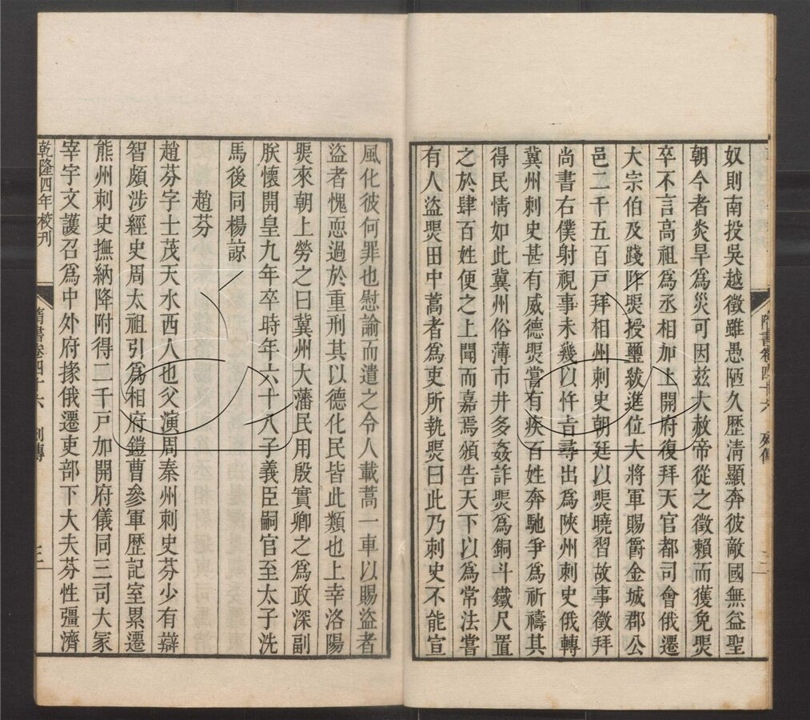 奴則南投吳越徵雖愚陋久歷清顯奔彼敵國無益聖
朝今者炎旱為災可因茲大赦帝從之徵賴而獲免煚
卒不言高祖為丞相加上開府復拜天官都司會俄遷
大宗伯及踐阼煚授璽紱進位大將軍賜爵金城郡公
邑二千五百戸拜相州刺史朝廷以煚曉習故事徵拜
尚書右僕射視事未幾以忤旨尋出為陝州刺史俄轉
冀州刺史甚有威德煚嘗有疾百姓奔馳爭為祈禱其
得民情如此冀州俗薄市井多姦詐煚為銅斗鐵尺置
之於肆百姓便之上聞而嘉焉頒告天下以為常法嘗
有人盜煚田中蒿者為吏所執煚曰此乃刺史不能宣
風化彼何罪也慰諭而遣之令人載蒿一車以賜盜者
盜者愧恧過於重刑其以德化民皆此類也上幸洛陽
煚來朝上勞之曰冀州大藩民用殷實卿之為政深副
朕懷開皇九年卒時年六十八子義臣嗣官至太子洗
馬後同楊諒
趙芬
趙芬字士茂天水西人也父演周秦州刺史芬少有辯
智頗涉經史周太祖引為相府鎧曹參軍歷記室累遷
熊州刺史撫納降附得二千戸加開府儀同三司大冢
宰宇文護召為中外府掾俄遷吏部下大夫芬性彊濟
乾隆四年校刊
隋書卷四十六 列傳